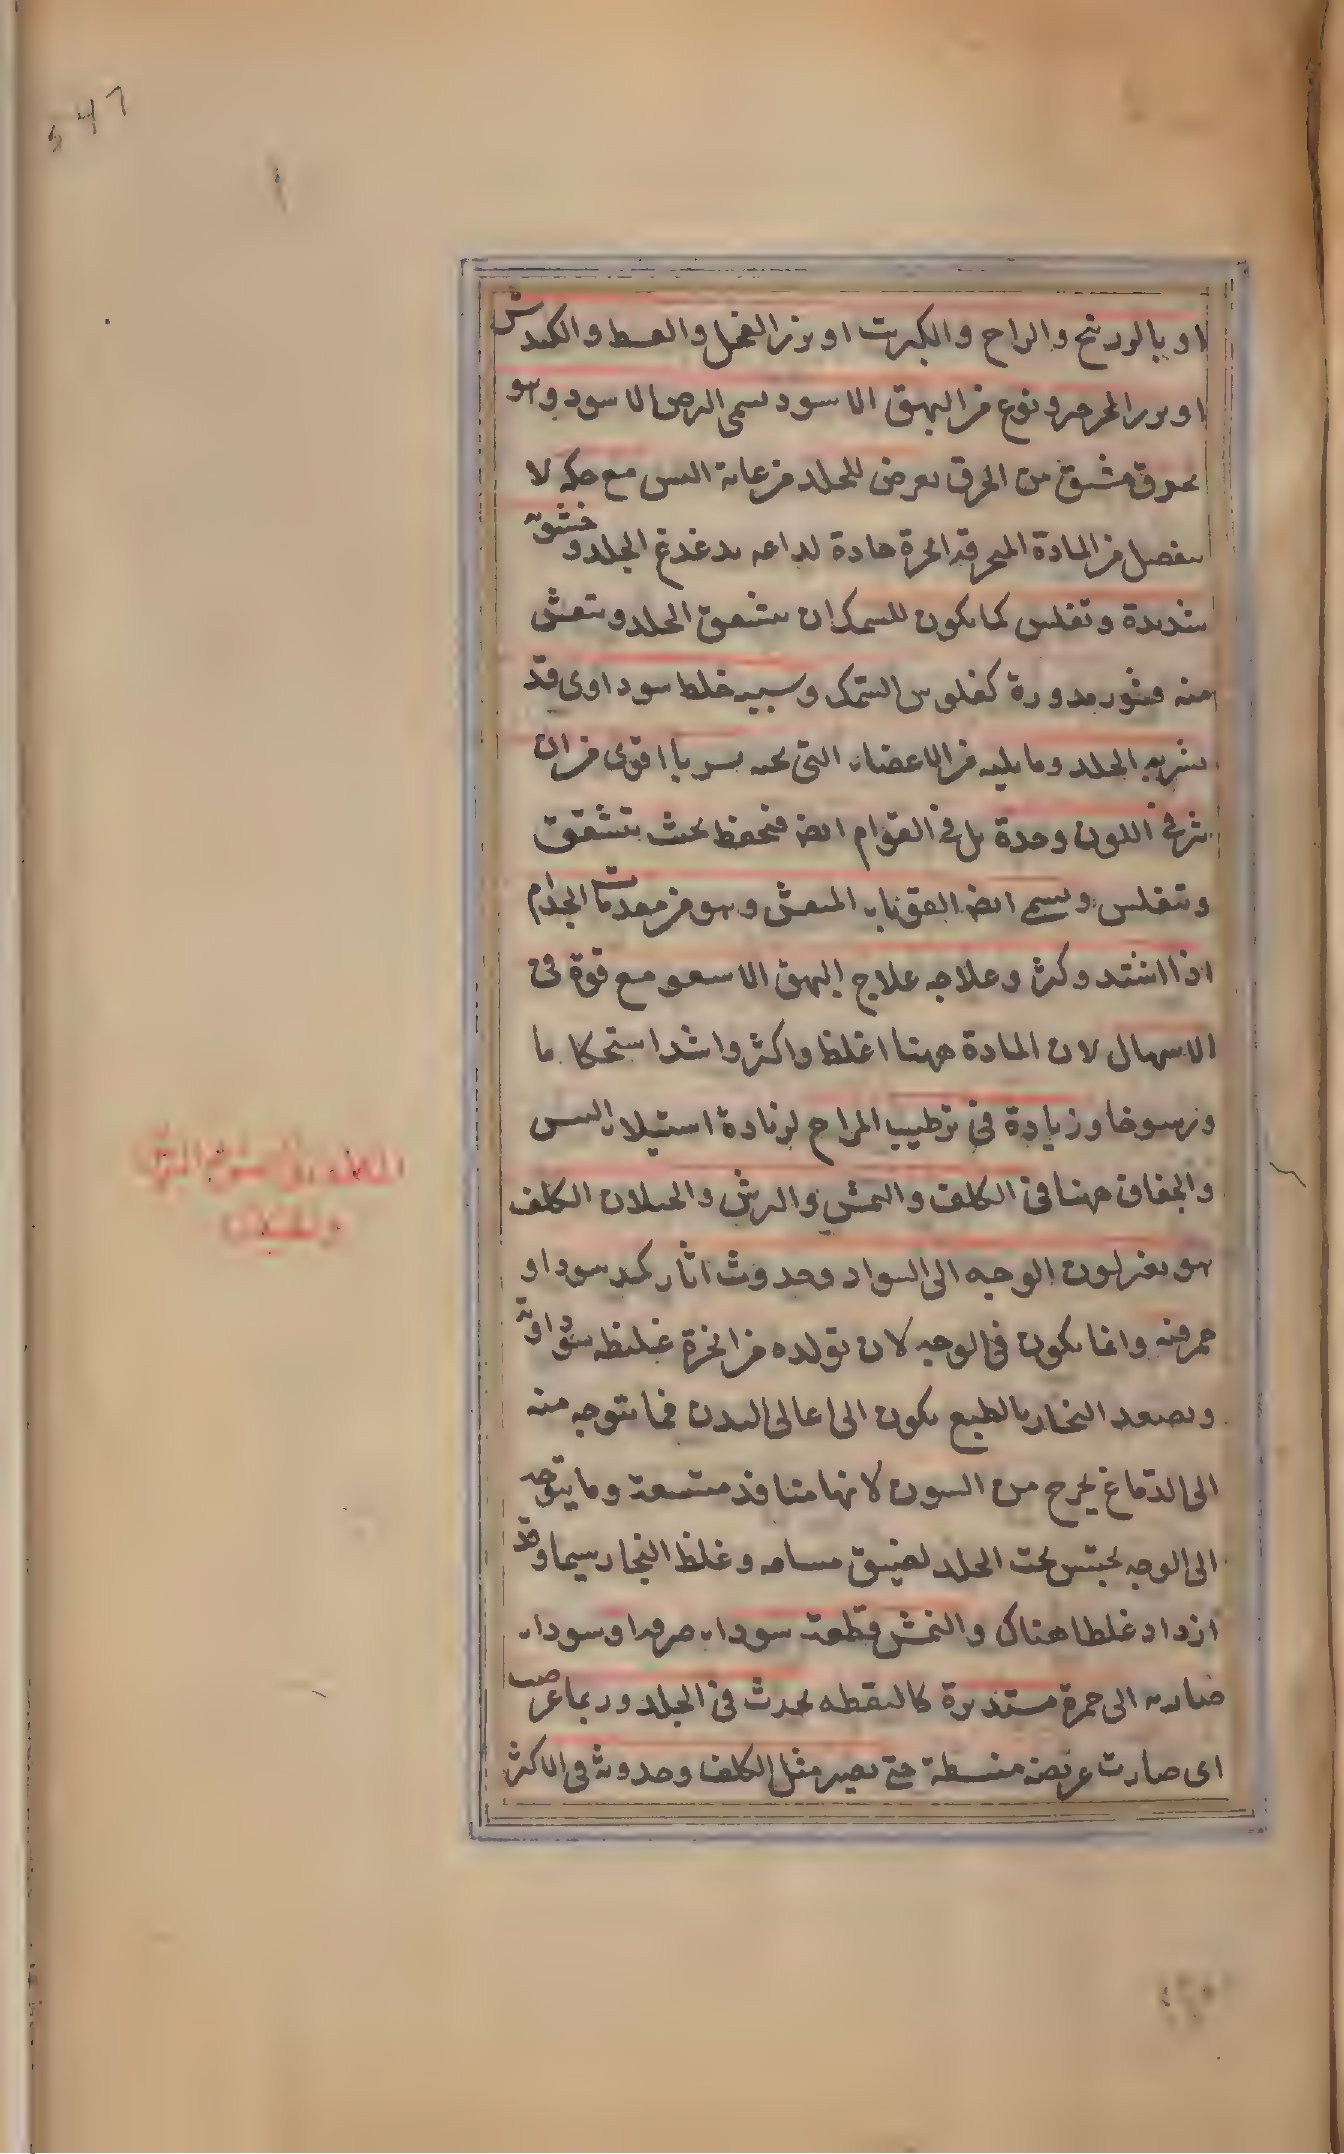 547
او بالزرنيخ والزاج والكبريت او بزر الفجل والقسط والكندش
او بزر الجرجير ونوع من البهق الاسود يسمى البرص الاسود وهو
من الحرق يعرض للجلد من غاية اليبس مع حكة لا
ينفصل من المادة المحرقة الحرة حادة لداعه يدغدغ الجلد وخشونة
شديدة وتفلس كما يكون للسمك ان يتشقق الجلد ويتقشر
منه قشور مدورة كفلوس السمك وسببه خلط سوداوى قد
يشربه الجلد وما يليه من الاعضاء التى تحته اقوى من ان
يؤثر في اللون وحده بل في القوام ايضا بحيث يتشقق
وتتفلس ويسمى ايضا القوباء المتقشر وهو من مقدمات الجذام
اذا اشتد وكثر وعلاجه علاج البهق الاسود مع قوة فى
الاسهال لان المادة ههنا اغلظ واكثر واشد استحكاما
ورسوخا وزيادة في ترطيب المزاج لزيادة استيلاء اليبس
والجفاف ههنا فى الكلف والنمش والبرش والخيلان الكلف
هو تغير لون الوجه الى السواد وحدوث اثار كمد سود او
حمر فيه وانما يكون فى الوجه لان تولده من ابخرة غليظة سوداوية
وبصعد البخار بالطبع يكون الى اعالى البدن فما يتوجه منه
الى الدماغ يخرج من الشون لانها منافذ متسعة وما يتوجه
الى الوجه يحتبس تحت الجلد لضيق مسامه وغلظ البخار سيما وقد
ازداد غلظا هناك والنمش قطعة سوداء صرفه او سوداء
ضاربة الى حمرة مستديرة كالنقطة يحدث في الجلد وربما عرضت
اى صارت عريضة منبسطة حتى يصير مثل الكلف وحدوثه فى الاكثر